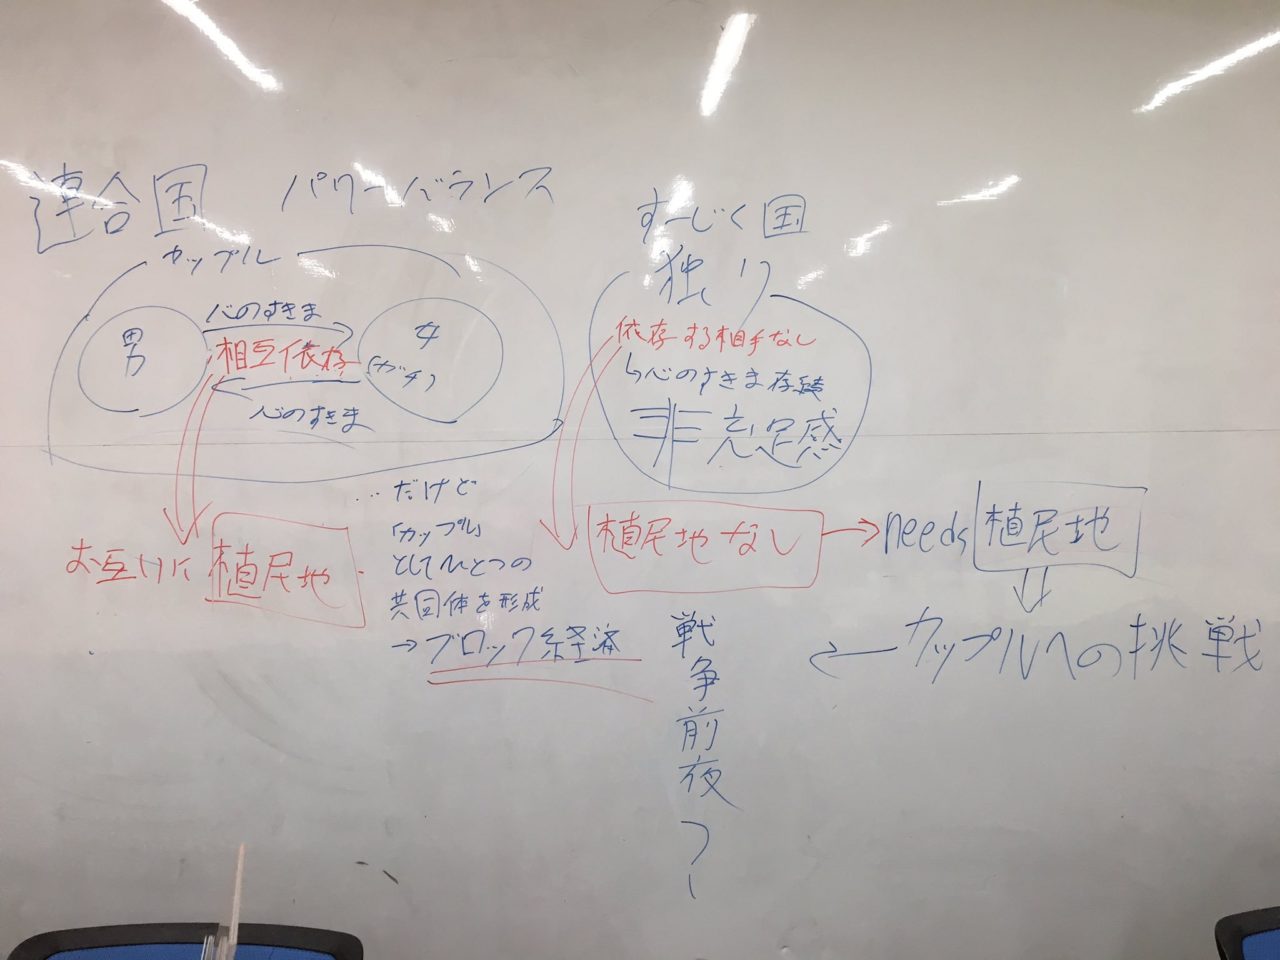 連合国 パワーバランス
カップル
男
心のすきま
相互依存
心のすきま
女
(ガチ)
お互いに 植民地
…だけど
「カップル」
としてひとつの
共同体を形成
→ブロック経済
すーじく国
独り
依存する相手なし
↳心のすきま存続
非充足感
植民地なし → needs 植民地
⇓
← カップルへの挑戦
戦争前夜?